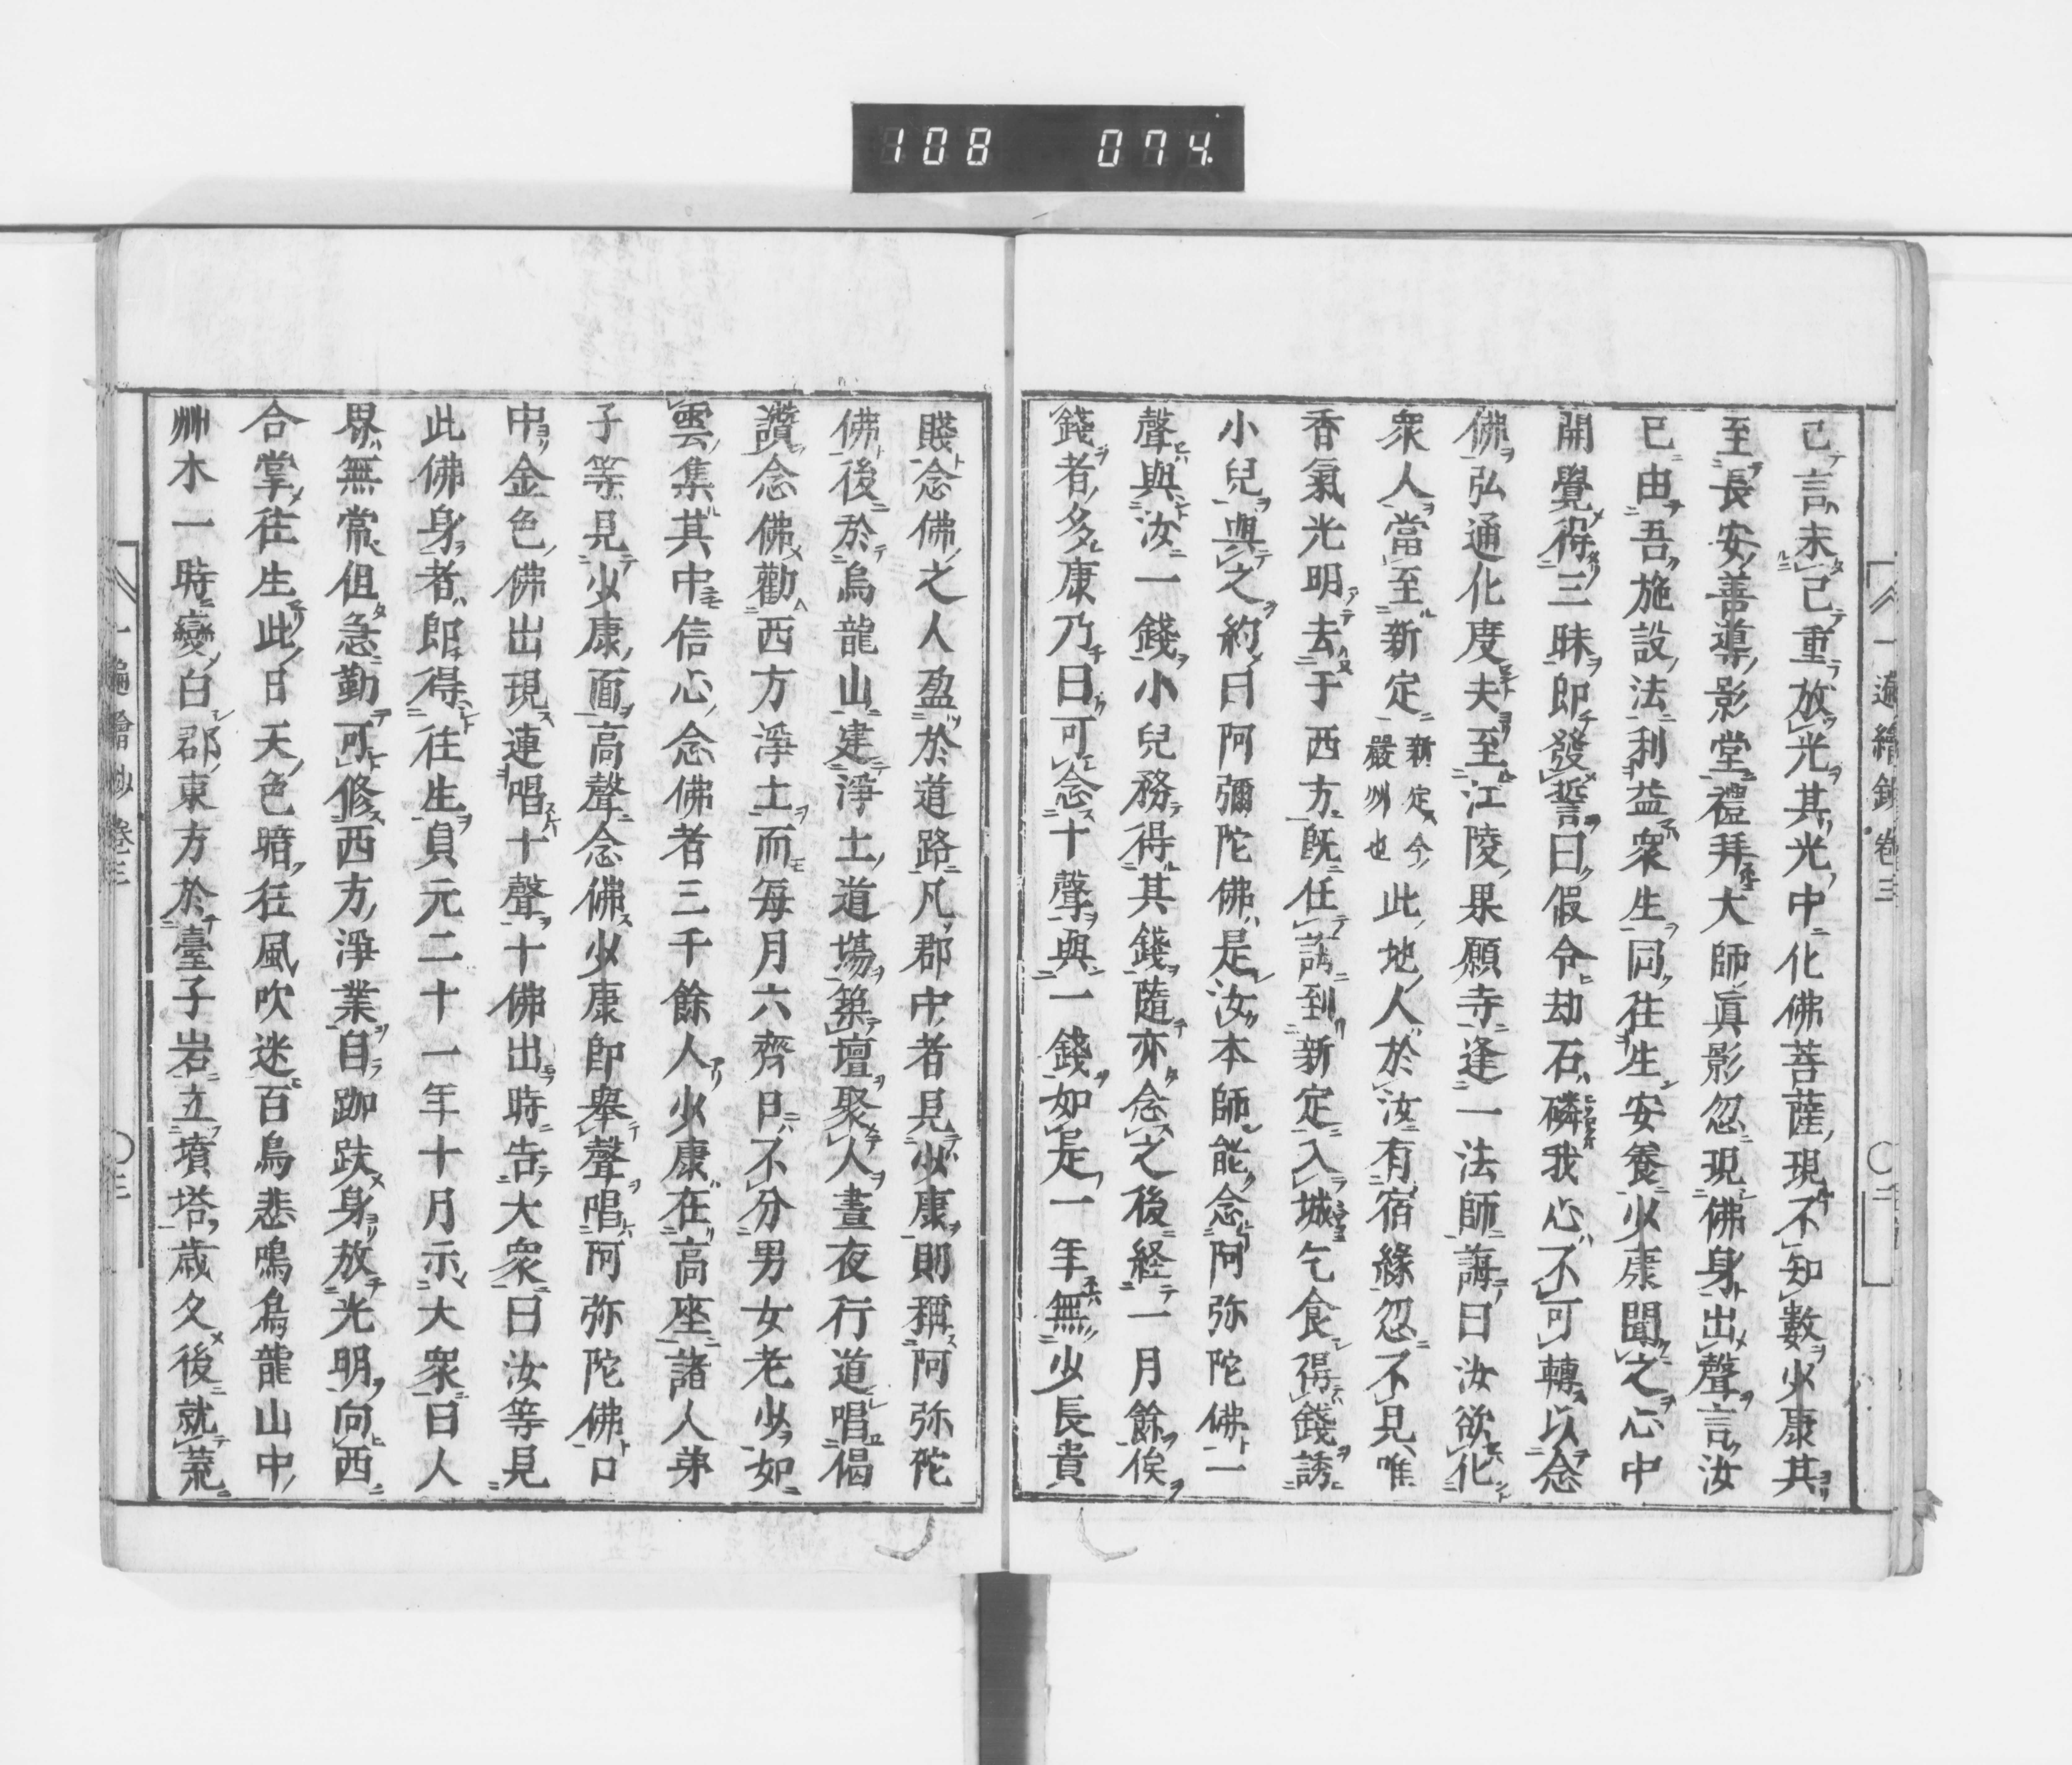 108 074
一遍繪鈔 卷三 〇二
已言未已重放光其光中化佛菩薩現不知數少康其
至長安善導影堂禮拜大師眞影忽現佛身出聲言汝
已由吾施設法利益衆生同往生安養少康聞之心中
開覺得三昧即發誓曰假令劫石磷我心不可轉以念
佛弘通化度夫至江陵果願寺逢一法師誨曰汝欲化
衆人當至新定新定今嚴州也此地人於汝有宿緣忽不見唯
香氣光明去于西方既任誨到新定入城乞食得錢誘
小兒與之約曰阿彌陀佛是汝本師能念阿弥陀佛一
聲與汝一錢小兒務得其錢隨亦念之後経一月餘俟
錢者多康乃曰可念十聲與一錢如是一年無少長貴
賤念佛之人盈於道路凡郡中者見少康則稱阿弥陀
佛後於烏龍山建淨土道場築壇聚人晝夜行道唱偈
讚念佛勸西方淨土而每月六齊日不分男女老少如
雲集其中信心念佛者三千餘人少康在高座諸人弟
子等見少康面高聲念佛少康即舉聲唱阿弥陀佛口
中金色佛出現連唱十聲十佛出時告大衆曰汝等見
此佛身者郎得往生貞元二十一年十月示大衆曰人
界無常但急勤可修西方淨業自跏趺身放光明向西
合掌往生此日天色暗狂風吹迷百鳥悲鳴烏龍山中
艸木一時變白郡東方於臺子岩立墳塔歳久後就荒
一遍繪鈔 卷三 〇三